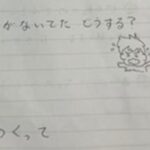 がないてた どうする?
つくって